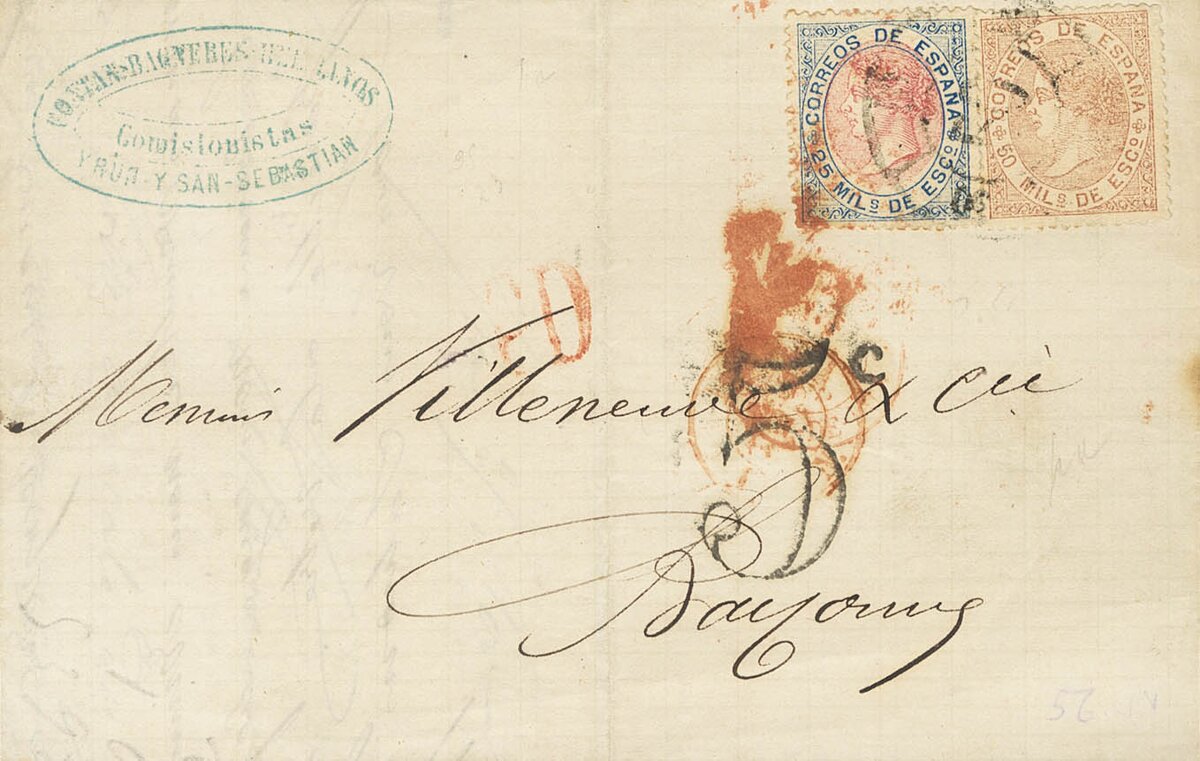 BAGNERES
Comisionistas
YRUN-Y SAN-SEBASTIAN
CORREOS DE ESPAÑA
25 MILS DE ESCO
CORREOS DE ESPAÑA
50 MILS DE ESCO
PD
5
C
Messieurs Villeneuve & Cie
Bayonne